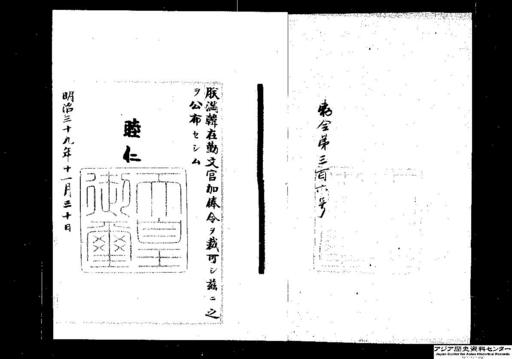 勅令第三百六号
朕満韓在勤文官加俸令ヲ裁可シ茲ニ之
ヲ公布セシム
睦仁
天皇御璽
明治三十九年十一月三十日
アジア歴史資料センター
Japan Center for Asian Historical Records